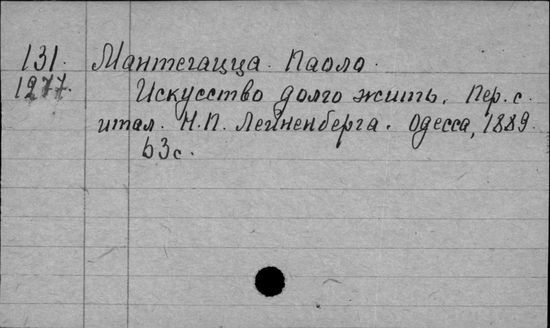 131. Мантегацца Паоло.
1277. Искусство долго жить. Пер. с
итал. Н.П. Лейненберга. Одесса, 1889.
63с.